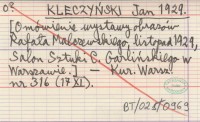 KLECZYŃSKI Jan 1929.
[Omówienie wystawy obrazów
Rafała Malczewskiego, listopad 1929,
Salon Sztuki C. Garlińskiego w
Warszawie.] — Kur. Warsz.
nr 316 (17 XI).